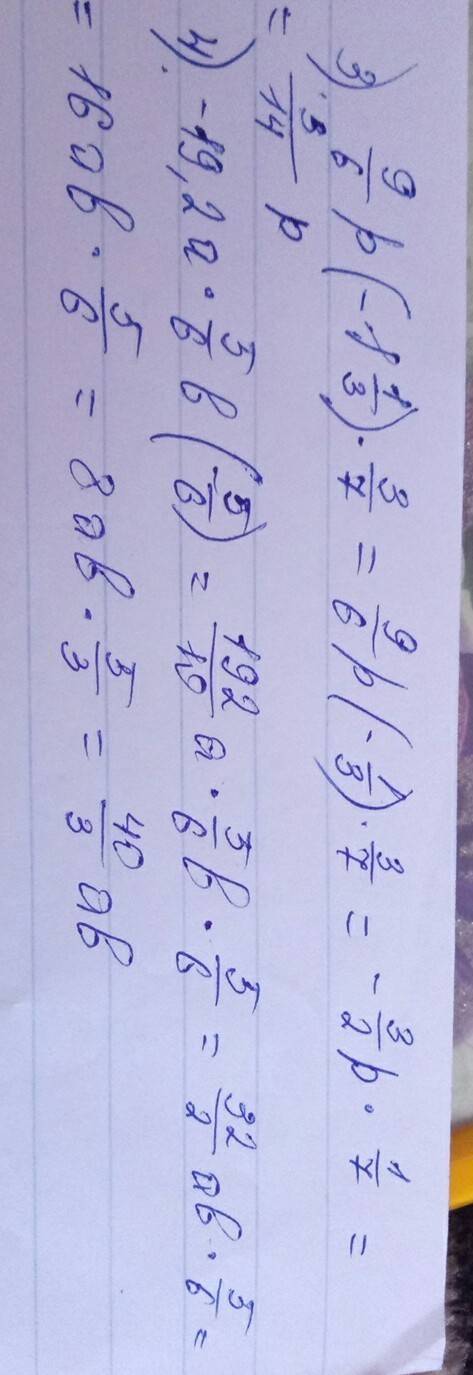 3) 9/6 p (-1 1/3) · 3/7 = 9/6 p (-1/3) · 3/7 = -3/2 p · 1/7 =
= 3/14 p
4) -19,2a · 5/6 в (-5/6) = 192/10 a · 5/6 в · 5/6 = 32/2 aв · 5/6 =
= 16aв · 5/6 = 8aв · 5/3 = 40/3 aв